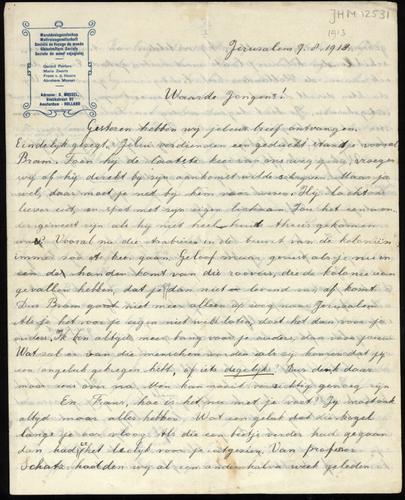 JHM 12531
1913
Wereldreisgezelschap
Weltreisegesellschaft
Société de voyage du monde
Gerard Perlien
Frans v. d. Hoorn
Abraham Mossel
Adresse: S. MOSSEL,
Amsterdam - HOLLAND
Jerusalem 9. 8. 1913.
Waarde Jongens!
Gisteren hebben wij jelui brief ontvangen
Eindelijk gezegd. Jelui verdienden een gedachte stand je vooral
Bram. Toen hij de laatste keer van ons weg ging, vroegen
wij of hij direkt bij zijn aankomst wilde schrijven. Maar ja
wel, daar moet je net bij hem voor wezen. Hij lacht je
liever uit, en spot met zijn eigen lichaam. Zou het een won-
der geweest zijn als hij niet heelhuids thuis gekomen
was? Vooral nu die in de buurt van de koloniën
immer zoo te keer gaan. Geloof maar gerust als je nu in
een de handen komt van die roovers, die de kolonie aan
gevallen hebben, dat je dan niet levend er af komt.
Dus Bram goed niet meer alleen op weg naar Jeruzalem
Als je het voor je eigen niet wilt laten, doet het dan voor je
ouders. Ik ben altijd meer bang voor je ouders, dan voor jou
Wat zal er van die menschen worden als zij hooren dat jij
een ongeluk gekregen hebt, of iets dergelijks! Dus denk daar
maar eens over na. Men kan nooit voorzichtig genoeg zijn
En, Frans, hoe is het nu met je voet? Jij moet ook
altijd maar alles hebben. Wat een geluk dat die kogel
langs je oor vloog. Als die een beetje verder had gegaan
dan had het leelijk voor je uitgezien. Van professor
Schatz, hadden wij al een anderhalve week geleden